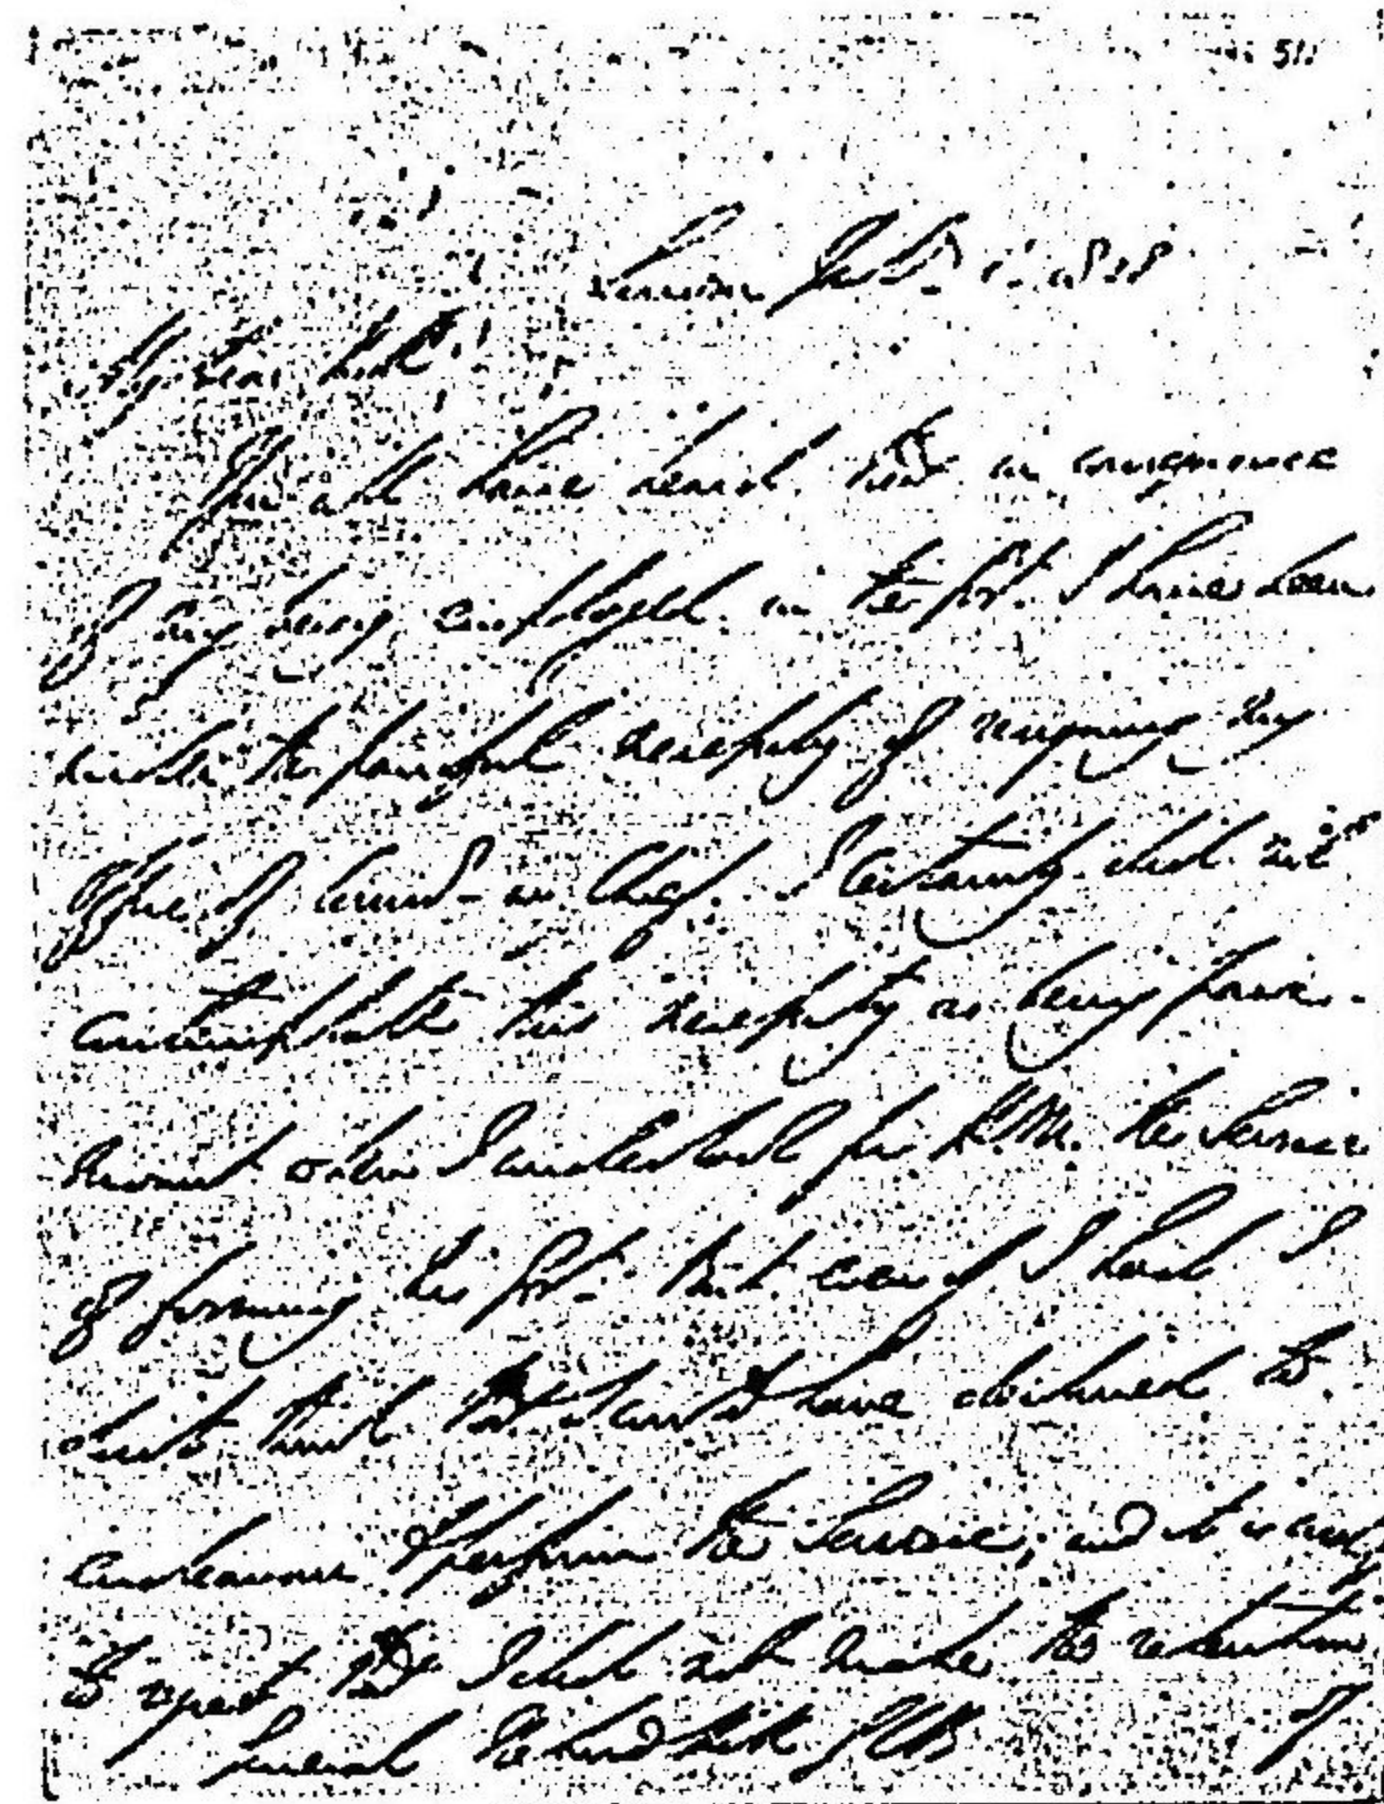 511
London Feb. 1. 1828
My dear Lord Hill!
You will have heard that in consequence
of my being employed in the Govt. I have been
under the painful necessity of resigning my
Office of Commr. in Chief. I certainly did not
contemplate this necessity as being para-
mount when I undertook for H.M. the Service
of forming his Govt. But even if I had I
don't think that I could have declined to
endeavour to perform the Service; and it is only
to regret that I did not make the retention
of
General Lord Hill GCB